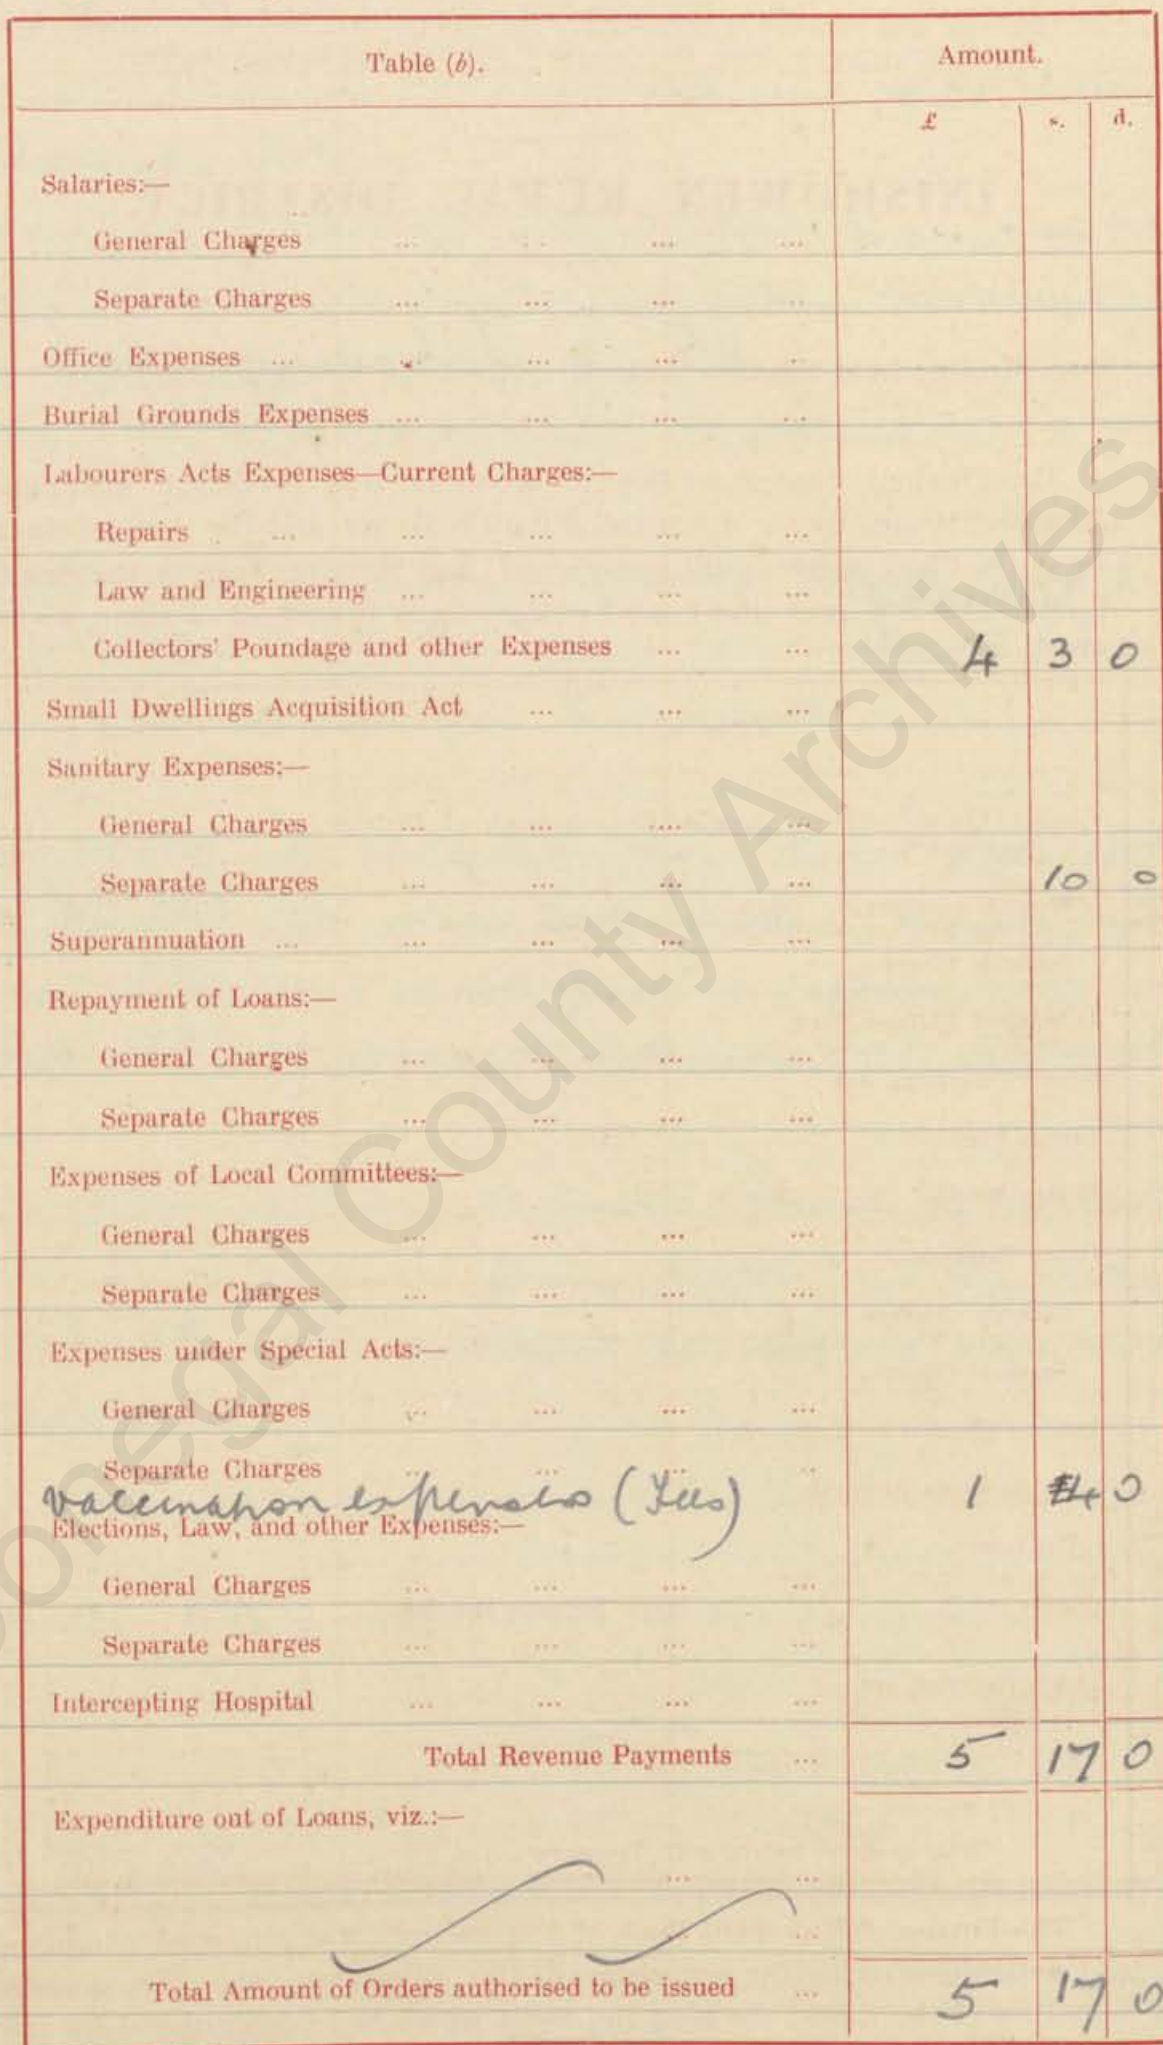 Table (b). Amount.
£ s. d.
Salaries:—
General Charges ... ... ... ...
Separate Charges ... ... ... ...
Office Expenses ... ... ... ... ...
Burial Grounds Expenses ... ... ... ...
Labourers Acts Expenses—Current Charges:—
Repairs ... ... ... ... ...
Law and Engineering ... ... ... ...
Collectors' Poundage and other Expenses ... ... 4 3 0
Small Dwellings Acquisition Act ... ... ...
Sanitary Expenses:—
General Charges ... ... ... ...
Separate Charges ... ... ... ... 10 0
Superannuation ... ... ... ... ...
Repayment of Loans:—
General Charges ... ... ... ...
Separate Charges ... ... ... ...
Expenses of Local Committees:—
General Charges ... ... ... ...
Separate Charges ... ... ... ...
Expenses under Special Acts:—
General Charges ... ... ... ...
Separate Charges ... ... ... ...
Vaccination expenses (Fees) 1 4 0
Elections, Law, and other Expenses:—
General Charges ... ... ... ...
Separate Charges ... ... ... ...
Intercepting Hospital ... ... ... ...
Total Revenue Payments ... 5 17 0
Expenditure out of Loans, viz.:—
... ...
...
Total Amount of Orders authorised to be issued ... 5 17 0
Donegal County Archives